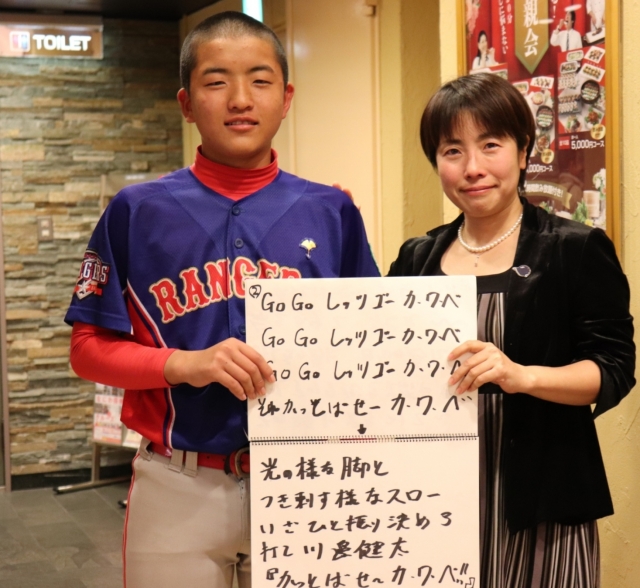 TOILET
RANGER
GERS
5,000円コース
② Go Go レッツゴー カ・ワ・ベ
Go Go レッツゴー カ・ワ・ベ
Go Go レッツゴー カ・ワ・ベ
かっとばせー カ・ワ・ベ
↓
光の様な脚と
つき刺す様なスロー
いざひと振り決めろ
打て川邊健太
『かっとばせ〜 カ・ワ・ベ』